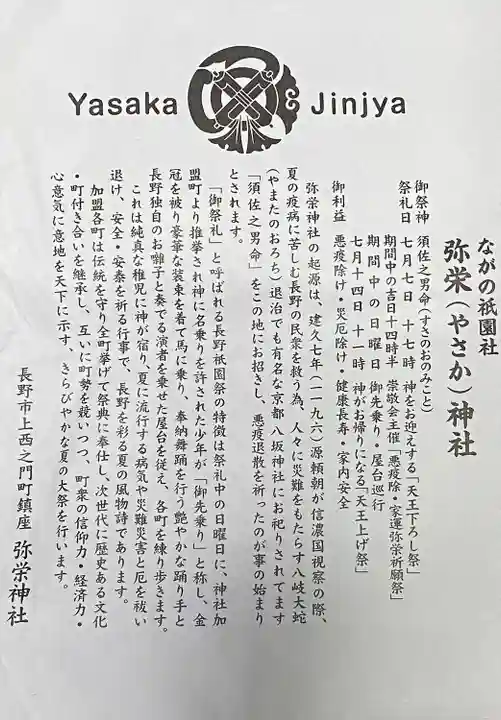 Yasaka Jinjya
ながの祇園社
弥栄(やさか)神社
御祭神 須佐之男命(すさのおのみこと)
祭礼日 七月七日 十七時 神をお迎えする「天王下ろし祭」
期間中の吉日十四時半 崇敬会主催「悪疫除・家運弥栄祈願祭」
期間中の日曜日 御先乗り・屋台巡行
七月十四日十一時 神がお帰りになる「天王上げ祭」
御利益 悪疫除け・災厄除け・健康長寿・家内安全
弥栄神社の起源は、建久七年(一一九六)源頼朝が信濃国視察の際、
夏の疫病に苦しむ長野の民衆を救う為、人々に災難をもたらす八岐大蛇
(やまたのおろち)退治でも有名な京都八坂神社にお祀りされてます
「須佐之男命」をこの地にお招きし、悪疫退散を祈ったのが事の始まり
とされます。
「御祭礼」と呼ばれる長野祇園祭の特徴は祭礼中の日曜日に、神社加
盟町より推挙され神に名乗りを許された少年が「御先乗り」と称し、金
冠を被り豪華な装束を着て馬に乗り、奉納舞踊を行う艶やかな踊り手と
長野独自のお囃子と奏でる演者を乗せた屋台を従え、各町を練り歩きます。
これは純真な稚児に神が宿り、夏に流行する病気や災難災害と厄を祓い
退け、安全・安泰を祈る行事で、長野を彩る夏の風物詩であります。
加盟各町は伝統を守り全町挙げて祭典に奉仕し、次世代に歴史ある文化
・町付き合いを継承し、互いに町勢を競いつつ、町衆の信仰力・経済力・
心意気に意地を天下に示す、きらびやかな夏の大祭を行います。
長野市上西之門町鎮座 弥栄神社